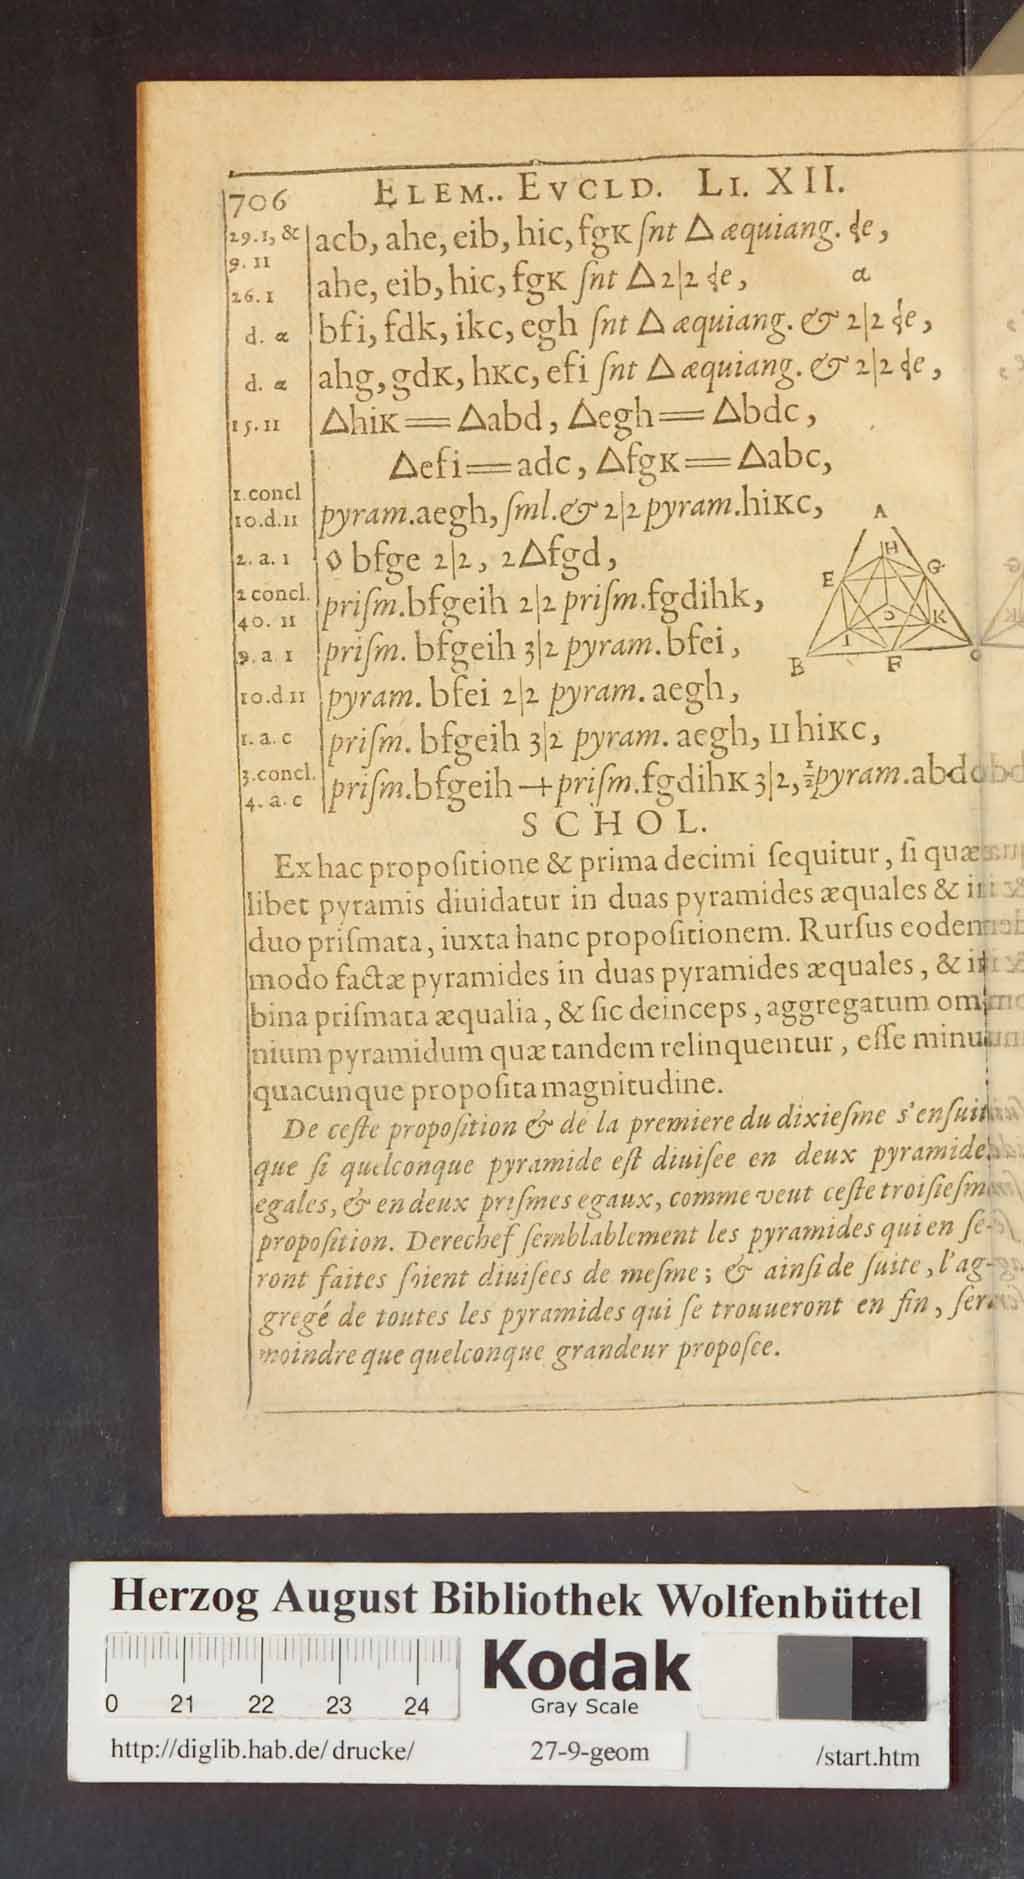 706 ELEM.. EVCLD. LI. XII.
29.1, & acb, ahe, eib, hic, fgK ſnt △ æquiang.
9. 11
26. 1 ahe, eib, hic, fgK ſnt △ 2|2 α
d. α bfi, fdk, ikc, egh ſnt △ æquiang. & 2|2
d. α ahg, gdK, hKc, efi ſnt △ æquiang. & 2|2
15. 11 △hiK == △abd, △egh == △bdc,
△efi == adc, △fgK == △abc,
1. concl
10.d.11 pyram.aegh, ſml. & 2|2 pyram.hiKc,
2. a. 1 ◊ bfge 2|2, 2△fgd,
2 concl.
40. 11 priſm.bfgeih 2|2 priſm.fgdihk,
9. a. 1 priſm. bfgeih 3|2 pyram. bfei,
10.d 11 pyram. bfei 2|2 pyram. aegh,
1. a. c priſm. bfgeih 3|2 pyram. aegh, II hiKc,
3. concl.
4. a. c priſm.bfgeih + priſm.fgdihK 3|2, ½pyram.abdc
A
H
E G
D K
I
B F C
SCHOL.
Ex hac propoſitione & prima decimi ſequitur, ſi quæ-
libet pyramis diuidatur in duas pyramides æquales & in
duo priſmata, iuxta hanc propoſitionem. Rurſus eodem
modo factæ pyramides in duas pyramides æquales, & in
bina priſmata æqualia, & ſic deinceps, aggregatum om-
nium pyramidum quæ tandem relinquentur, eſſe minus
quacunque propoſita magnitudine.
De ceſte propoſition & de la premiere du dixieſme s'enſuit
que ſi quelconque pyramide eſt diuiſee en deux pyramides
egales, & en deux priſmes egaux, comme veut ceſte troiſieſme
propoſition. Derechef ſemblablement les pyramides qui en ſe-
ront faites ſoient diuiſees de meſme; & ainſi de ſuite, l'ag-
gregé de toutes les pyramides qui ſe trouueront en fin, ſera
moindre que quelconque grandeur propoſee.
Herzog August Bibliothek Wolfenbüttel
Kodak
Gray Scale
0 21 22 23 24
http://diglib.hab.de/drucke/ 27-9-geom /start.htm